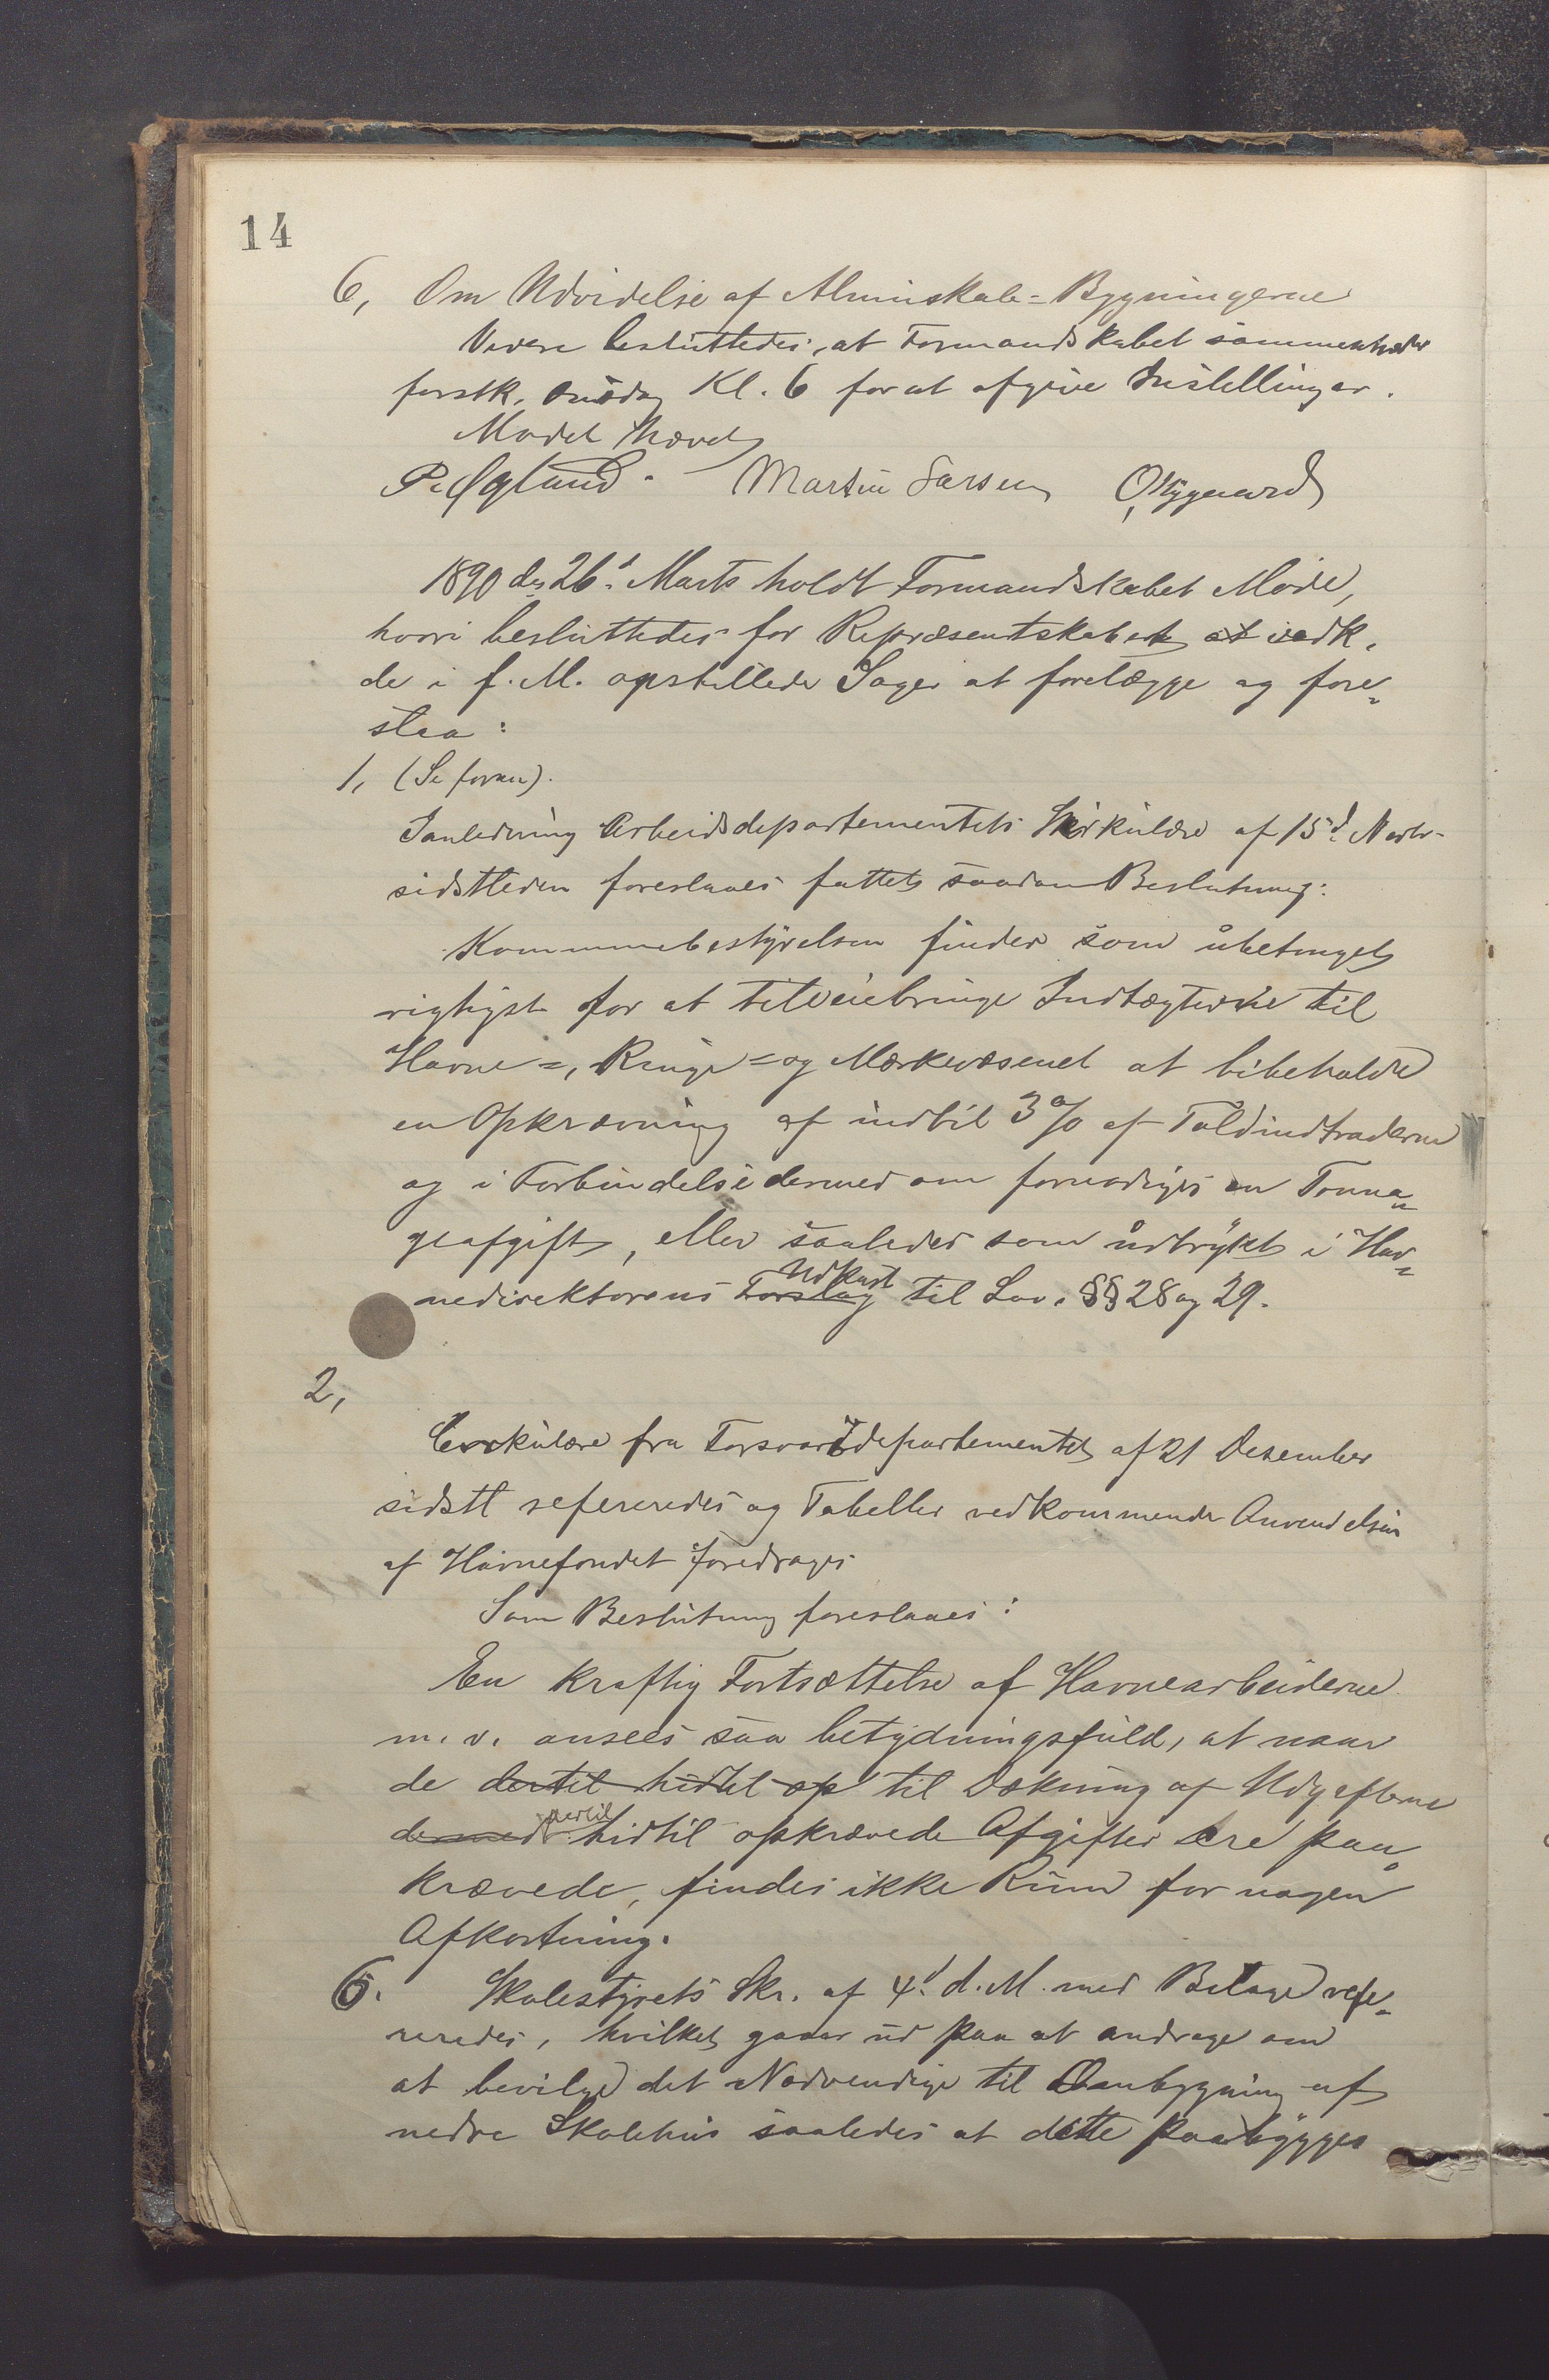 14
6, Om Udvidelse af Almuskole-Bygningerne
Videre besluttedes, at Formandskabet sammentræder
førstk. Onsdag Kl. 6 for at afgive Instellinger.
Mødet hævet
P. Øglund. Martin Larsen O Nygaard
1890 den 26d. Marts holdt Formandskabet Møde,
hvori besluttedes for Repræsentskabet at vedk.
de i f. M. opstillede Sager at forelægge og fore=
slaa:
1, (Se foran).
Ianledning Arbeidsdepartementets Sirkulære af 15d. Novbr.
sidstleden foreslaaes fattet saadan Beslutning:
Kommunebestyrelsen finder som ubetinget
rigtigst for at tilveiebringe Indtægterne til
Havne=, Ringe= og Mærkevæsenet at bibeholde
en Opkrævning af indtil 3 % af Toldindtraderne
og i Forbindelse dermed om fornødiges en Tonna=
geafgift, eller saaledes som udtrykt i Hav=
nedirektørens Forslag Udkast til Lov. §§ 28 og 29.
2,
Cirkulære fra Forsvarsdepartementet af 21 Desember
sidstl refereredes og Tabeller vedkommende Anvendelsen
af Havnefondet foredrages
Som Beslutning foreslaaes:
En kraftig Fortsættelse af Havnearbeiderne
m. v. ansees saa betydningsfuld, at naar
de dertil hidtil op til Dækning af Udgifterne
dermed dertil hidtil opkrævede Afgifter ere paa=
krævede, findes ikke Rum for nogen
Afkortning.
6. Skolestyrets Skr. af 4d. d. M. med Bilage refe=
reredes, hvilket gaar ud paa at andrage om
at bevilge det Nødvendige til Ombygning af
nedre Skolehus saaledes at dette paabygges